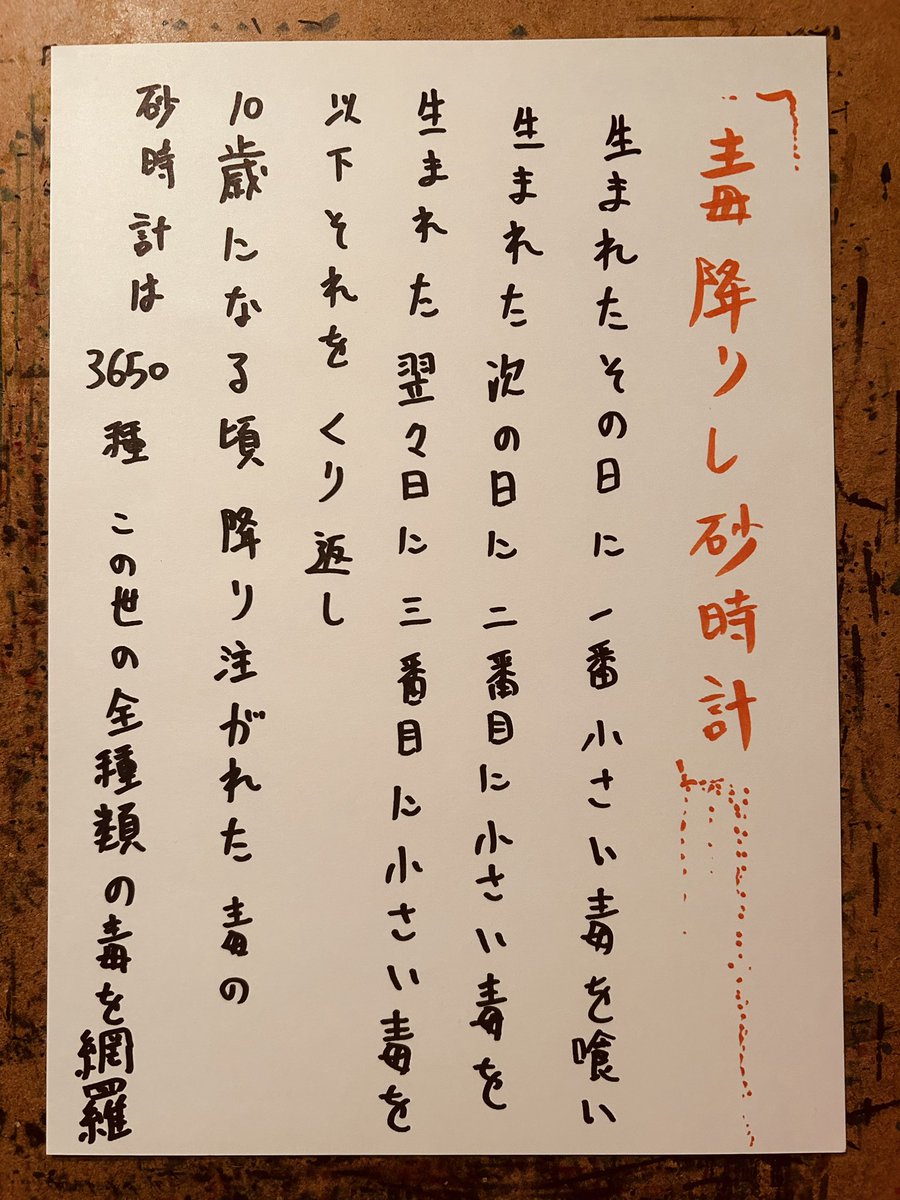 「毒降りし砂時計」
生まれたその日に 一番小さい毒を喰い
生まれた次の日に 二番目に小さい毒を
生まれた翌々日に 三番目に小さい毒を
以下それをくり返し
10歳になる頃 降り注がれた 毒の
砂時計は 3650種 この世の全種類の毒を網羅